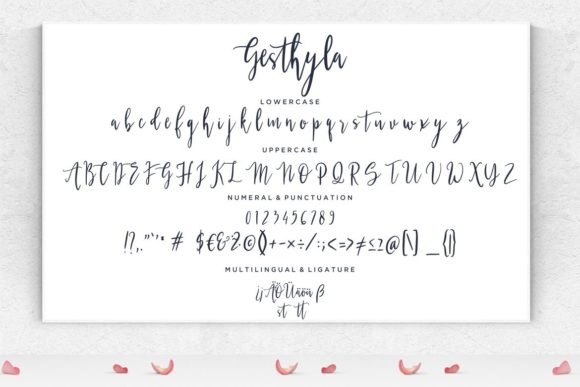 Gesthyla
LOWERCASE
a b c d e f g h i j k l m n o p q r s t u v w x y z
UPPERCASE
A B C D E F G H I J K L M N O P Q R S T U V W X Y Z
NUMERAL & PUNCTUATION
0 1 2 3 4 5 6 7 8 9
!?,."'* # $€&©()+-×÷/:;<=>≠≤≥@[\] _{|}
MULTILINGUAL & LIGATURE
¿¡ÄÖÜäöü ß
st tt